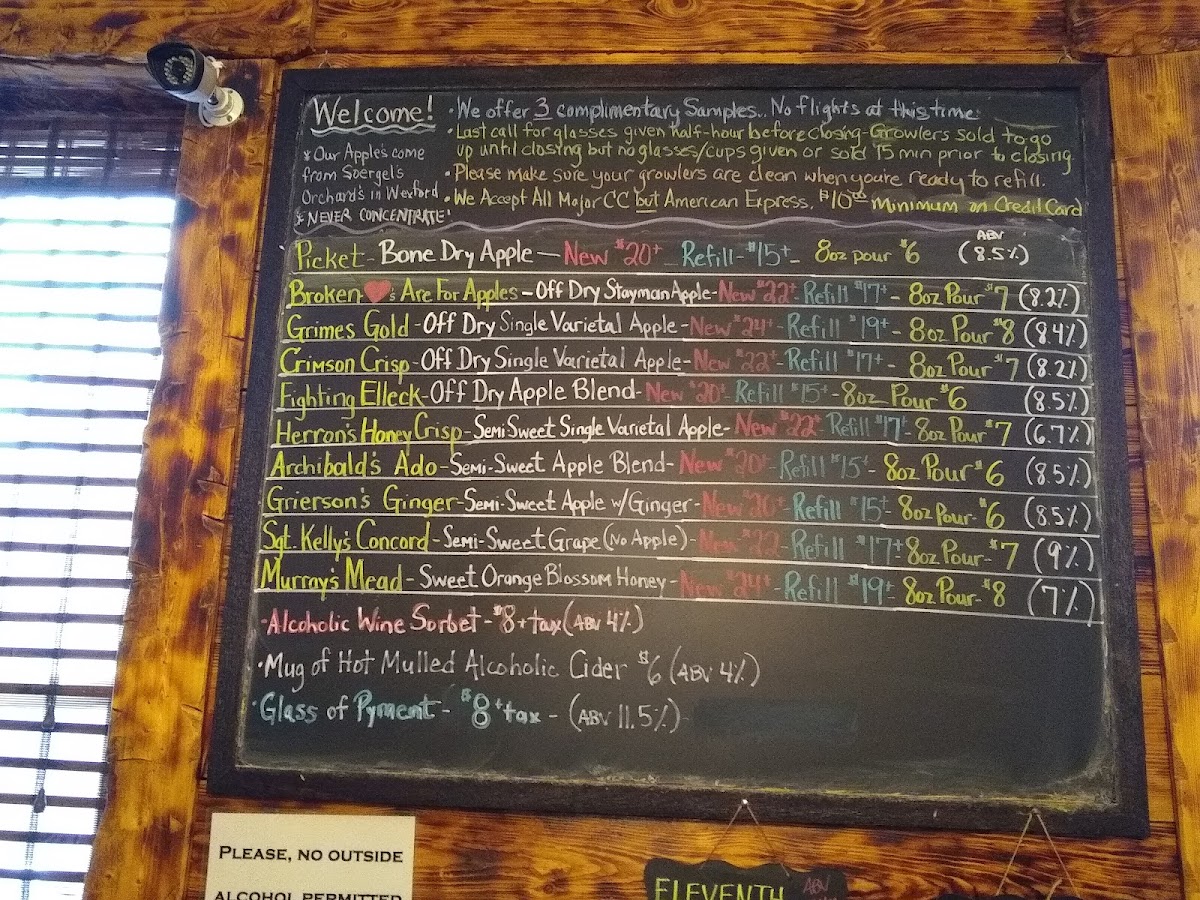 Welcome!
* Our Apples come
from Soergel's
Orchard's in Wexford
* NEVER CONCENTRATE!
• We offer 3 complimentary Samples.. No flights at this time.
• Last call for glasses given half-hour before closing - Growlers sold to go
up until closing but no glasses/cups given or sold 15 min prior to closing.
• Please make sure your growlers are clean when you're ready to refill.
• We Accept All Major CC but American Express. $10.00 Minimum on Credit Card
ABV
Picket - Bone Dry Apple - New $20+ Refill - $15+ - 8oz pour $6 (8.5%)
Broken ♥'s Are For Apples - Off Dry Stayman Apple - New $22+ - Refill $17+ - 8oz Pour $7 (8.2%)
Grimes Gold - Off Dry Single Varietal Apple - New $24+ - Refill $19+ - 8oz Pour $8 (8.4%)
Crimson Crisp - Off Dry Single Varietal Apple - New $22+ - Refill $17+ - 8oz Pour $7 (8.2%)
Fighting Elleck - Off Dry Apple Blend - New $20+ - Refill $15+ - 8oz Pour $6 (8.5%)
Herron's Honey Crisp - Semi Sweet Single Varietal Apple - New $22+ - Refill $17+ - 8oz Pour $7 (6.7%)
Archibald's Ado - Semi-Sweet Apple Blend - New $20+ - Refill $15+ - 8oz Pour $6 (8.5%)
Grierson's Ginger - Semi-Sweet Apple w/Ginger - New $20+ - Refill $15+ - 8oz Pour - $6 (8.5%)
Sgt. Kelly's Concord - Semi-Sweet Grape (No Apple) - New $22 - Refill $17+ 8oz Pour - $7 (9%)
Murray's Mead - Sweet Orange Blossom Honey - New $24+ - Refill $19+ 8oz Pour - $8 (7%)
• Alcoholic Wine Sorbet - $8 + tax (ABV 4%)
• Mug of Hot Mulled Alcoholic Cider $6 (ABV 4%)
• Glass of Pyment - $8 + tax - (ABV 11.5%) -
PLEASE, NO OUTSIDE
ALCOHOL PERMITTED
ELEVENTH ABV